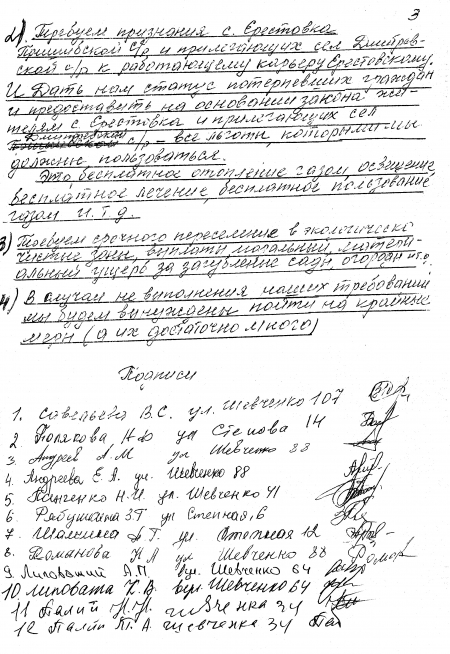 3
2) Требуем признания с. Ерестовка
Пришибской с/р и прилегающих сел Дмитров-
ской с/р к работающему карьеру Ерестовскому.
И Дать нам статус потерпевших граждан
и предоставить на основании закона жи-
телям с. Еристовка и прилегающих сел
Дмитровской с/р – все льготы, которыми мы
должны пользоваться.
Это бесплатное отопление газом, освещение
бесплатное лечение, бесплатное пользование
газом и.т.д.
3) Требуем срочного переселение в экологически
чистые зоны, выплаты моральный матери-
альный ущерб за загубление сады, огороды и т.д.
4) В случаи не выполнения наших требований
мы будем вынуждены пойти на крайные
меры (а их достаточно много)
Подписи
1. Савельева В.С. ул. Шевченко 107
2 Полякова, Н Ф ул Степова 14
3. Андреев А. М ул Шевченко 88
4. Андреева Е. А. ул. Шевченко 88
5 Панченко Н.И ул. Шевченко 41
6. Рябушкина З.Т ул Степная, 6
7 Шалимка Т. ул. Степная 12
8. Романова Н Л ул Шевченко 88
9. Липовский А.П. вул. Шевченко 64
10 Липовата К. В. вул. Шевченко 64
11 Палий Н. Н. Шевченка 34
12 Палти Т. А. Шевченка 34